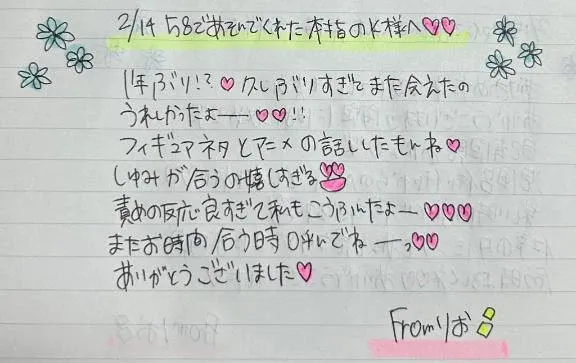 2/14 58であそんでくれた本指のK様へ♡♡
1年ぶり!?♡久しぶりすぎてまた会えたの
うれしかったよー♡♡!!
フィギュアネタとアニメの話ししたもんね♡
しゅみが合うの嬉しすぎる
責めの反応良すぎて私もこうふんしたよー♡♡♡
またお時間合う時呼んでねーっ♡♡
ありがとうございました♡
Fromりお